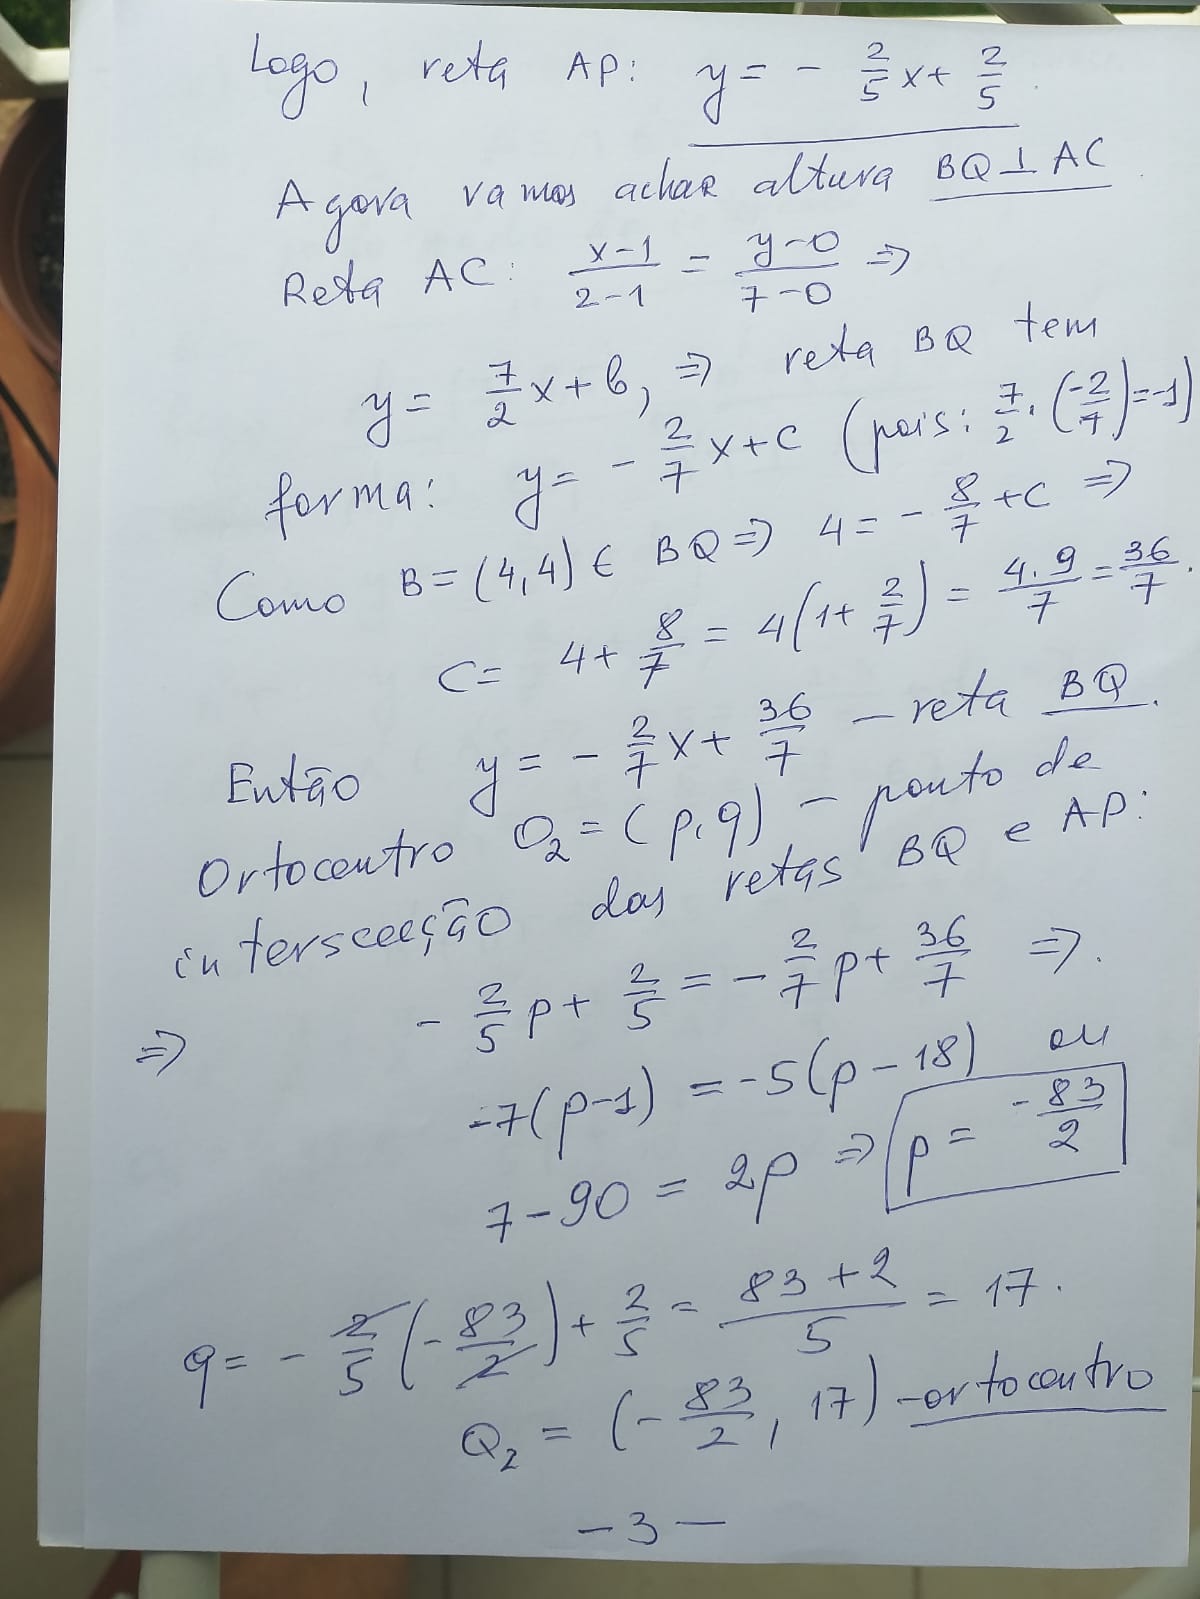 Logo, reta AP: y = - 2/5 x + 2/5.
Agora vamos achar altura BQ ⊥ AC
Reta AC: (x-1)/(2-1) = (y-0)/(7-0) ⇒
y = 7/2 x + b, ⇒ reta BQ tem
forma: y = - 2/7 x + C (pois: 7/2 · (-2/7) = -1)
Como B = (4,4) ∈ BQ ⇒ 4 = - 8/7 + C ⇒
C = 4 + 8/7 = 4(1 + 2/7) = 4·9/7 = 36/7.
Então y = - 2/7 x + 36/7 – reta BQ.
Ortocentro O₂ = (p, q) – ponto de
intersecção das retas BQ e AP:
⇒ - 2/5 p + 2/5 = - 2/7 p + 36/7 ⇒.
-7(p-1) = -5(p-18) ou
7 - 90 = 2p ⇒ p = - 83/2
q = - 2/5 (- 83/2) + 2/5 = (83+2)/5 = 17.
Q₂ = (- 83/2, 17) - ortocentro
- 3 -